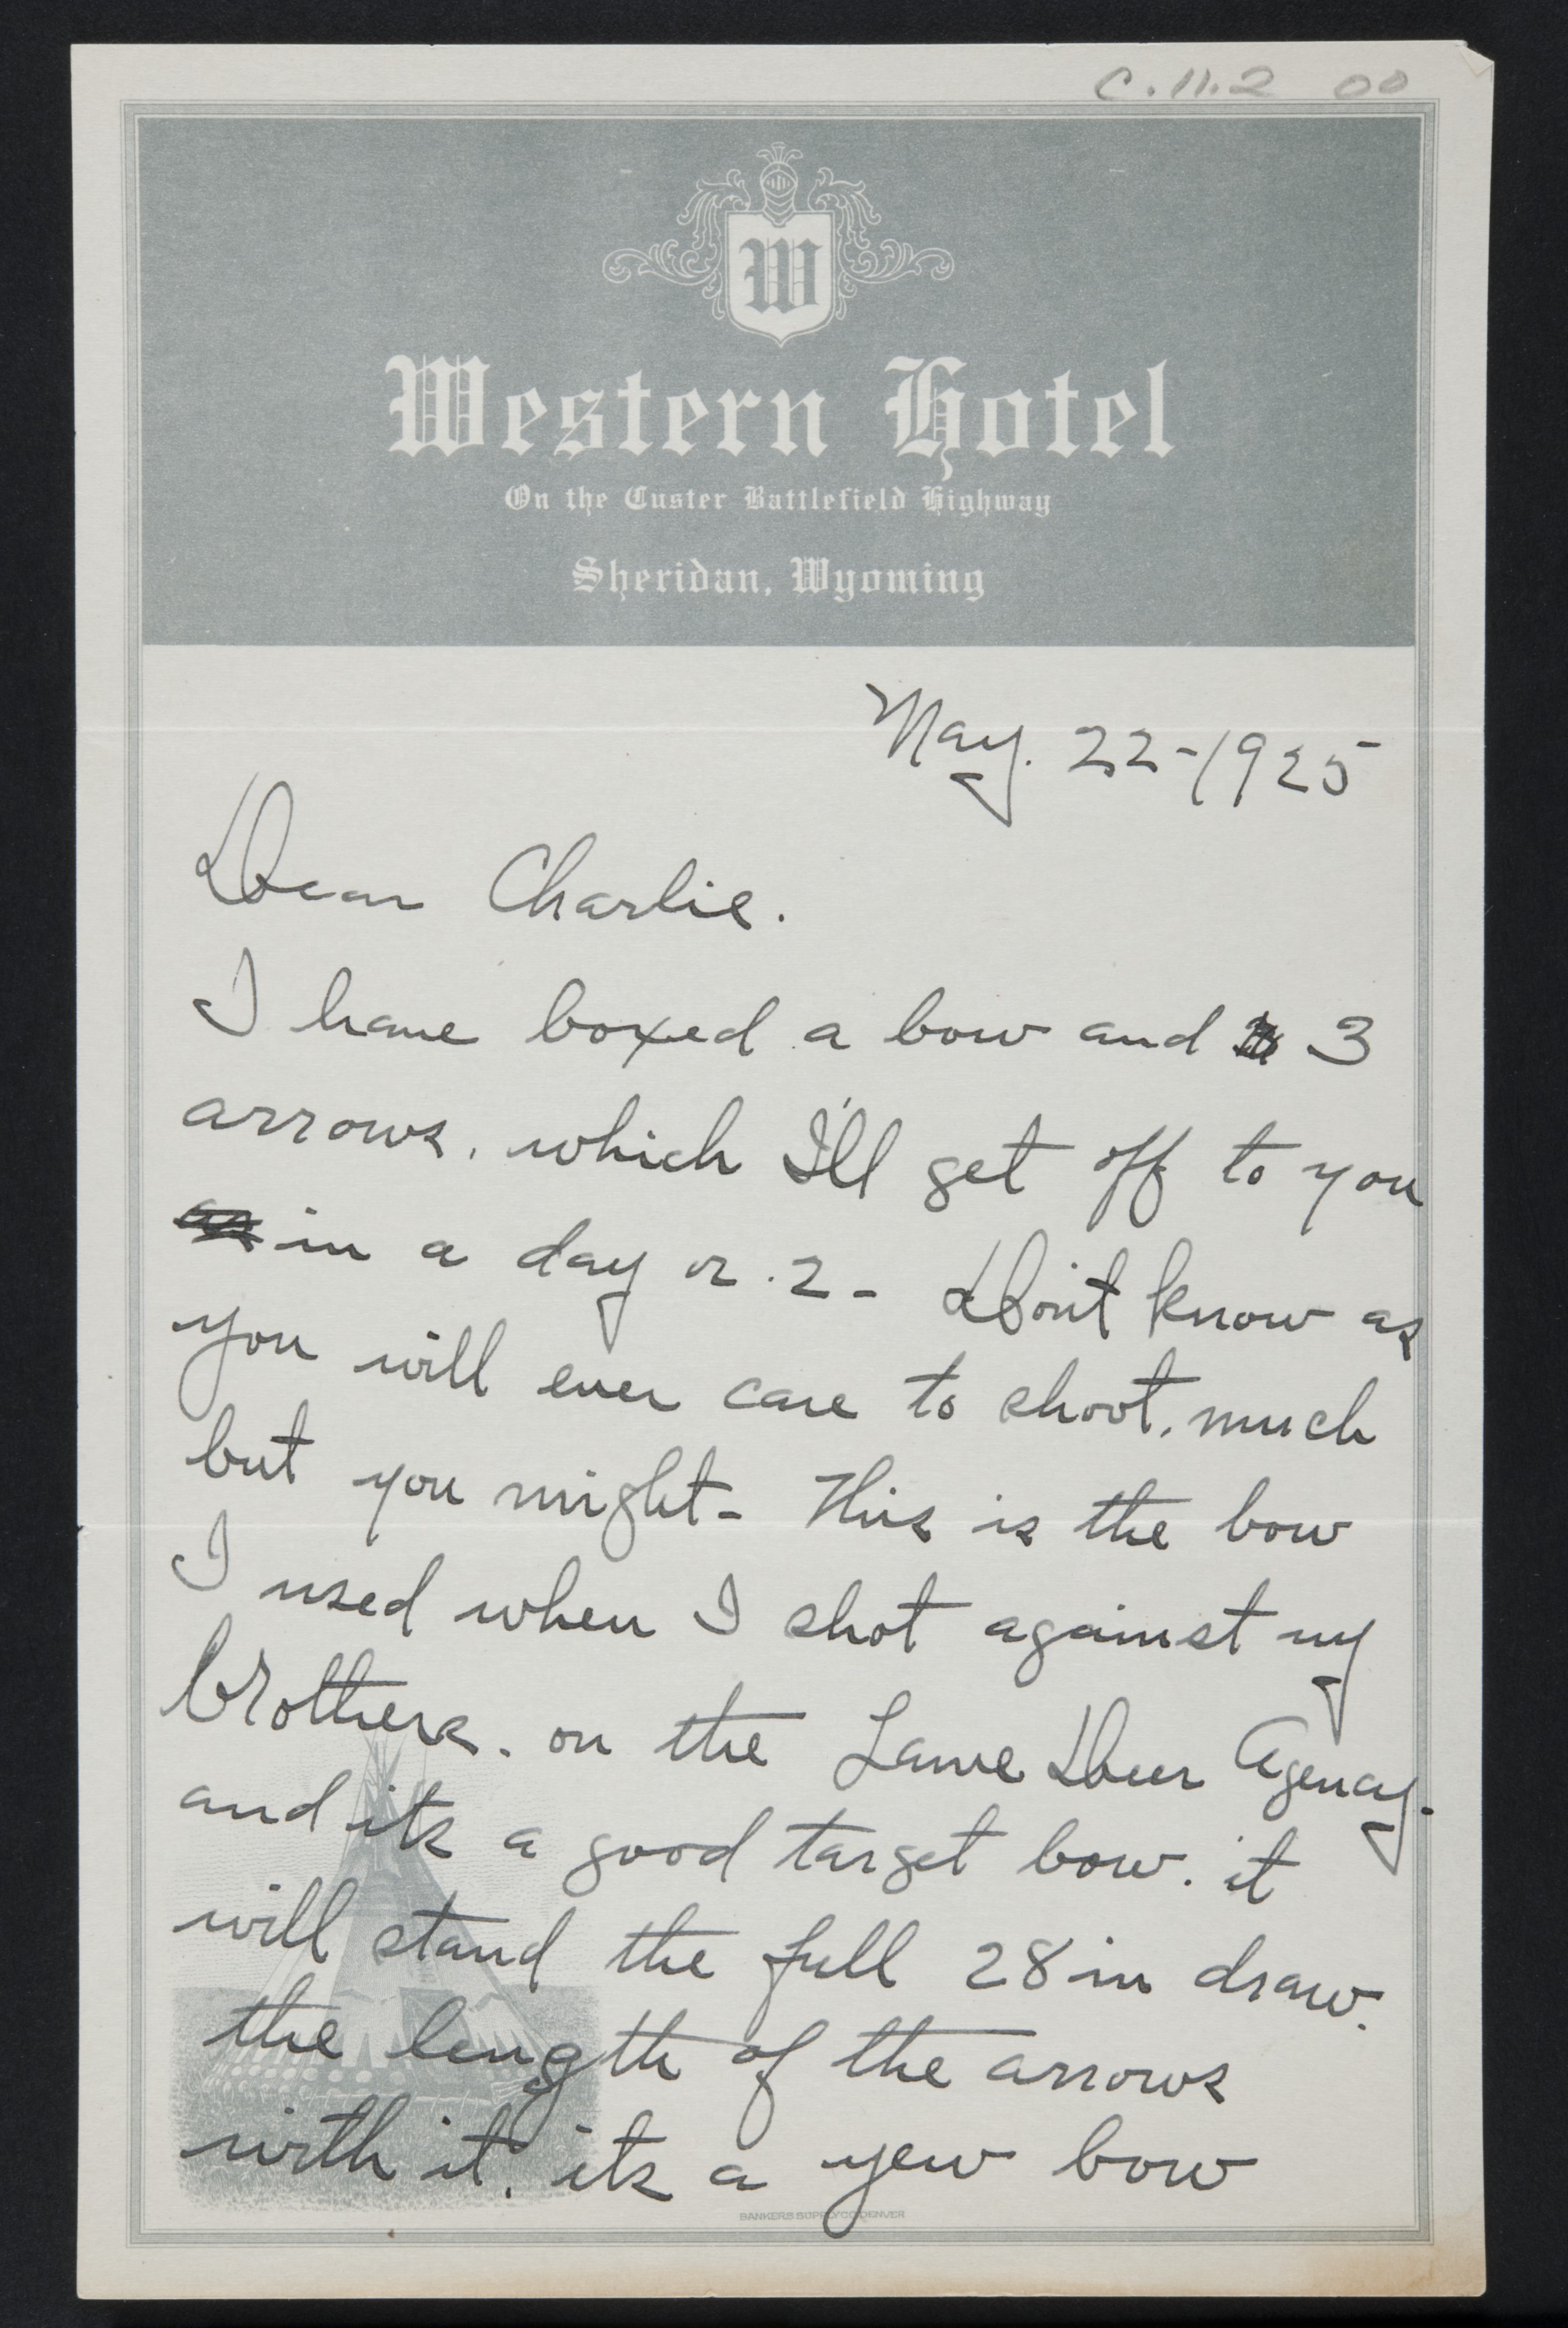 C.11.2 00
W
Western Hotel
On the Custer Battlefield Highway
Sheridan, Wyoming
May. 22-1925
Dear Charlie.
I have boxed a bow and 3
arrows, which I'll get off to you
in a day or 2- Don't know as
you will ever care to shoot, much
but you might- This is the bow
I used when I shot against my
brothers. on the Lame Deer Agency.
and its a good target bow. it
will stand the full 28 in draw.
the length of the arrows
with it. its a yew bow
BANKERS SUPPLY CO DENVER